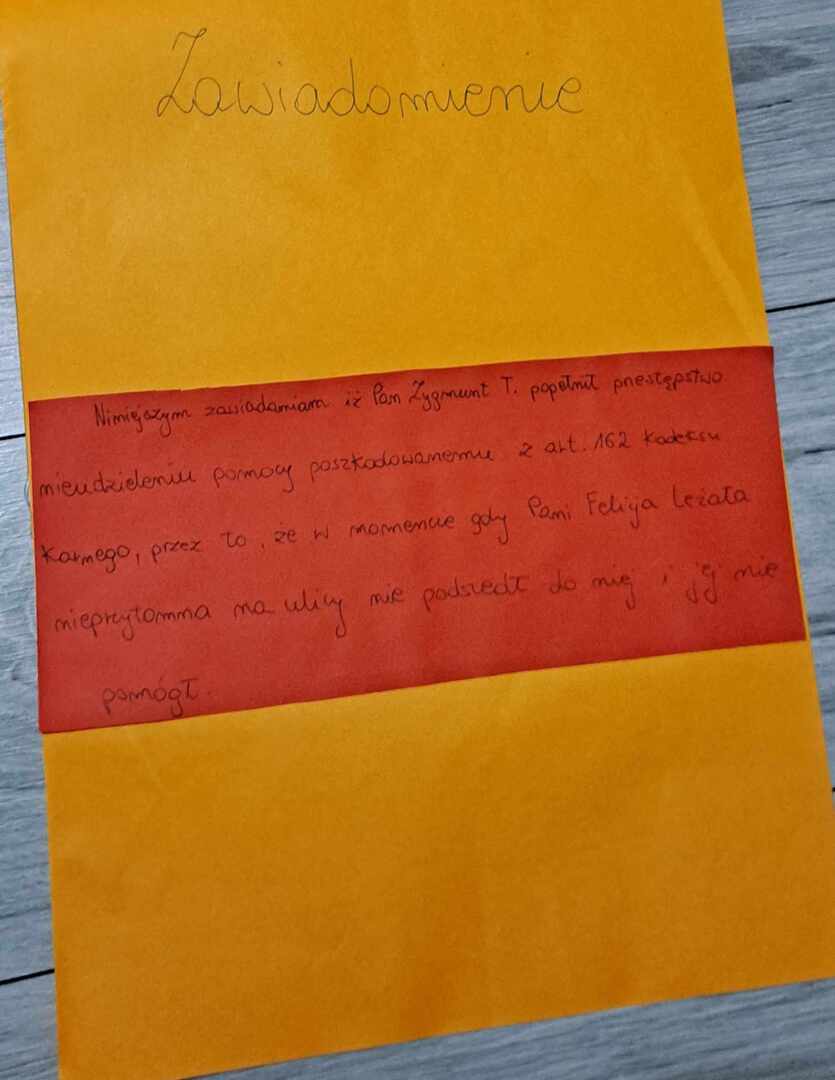 Zawiadomienie
Niniejszym zawiadamiam iż Pan Zygmunt T. popełnił przestępstwo
nieudzieleniu pomocy poszkodowanemu z art. 162 Kodeksu
Karnego, przez to, że w momencie gdy Pani Felicja leżała
nieprzytomna na ulicy nie podszedł do niej i jej nie
pomógł.